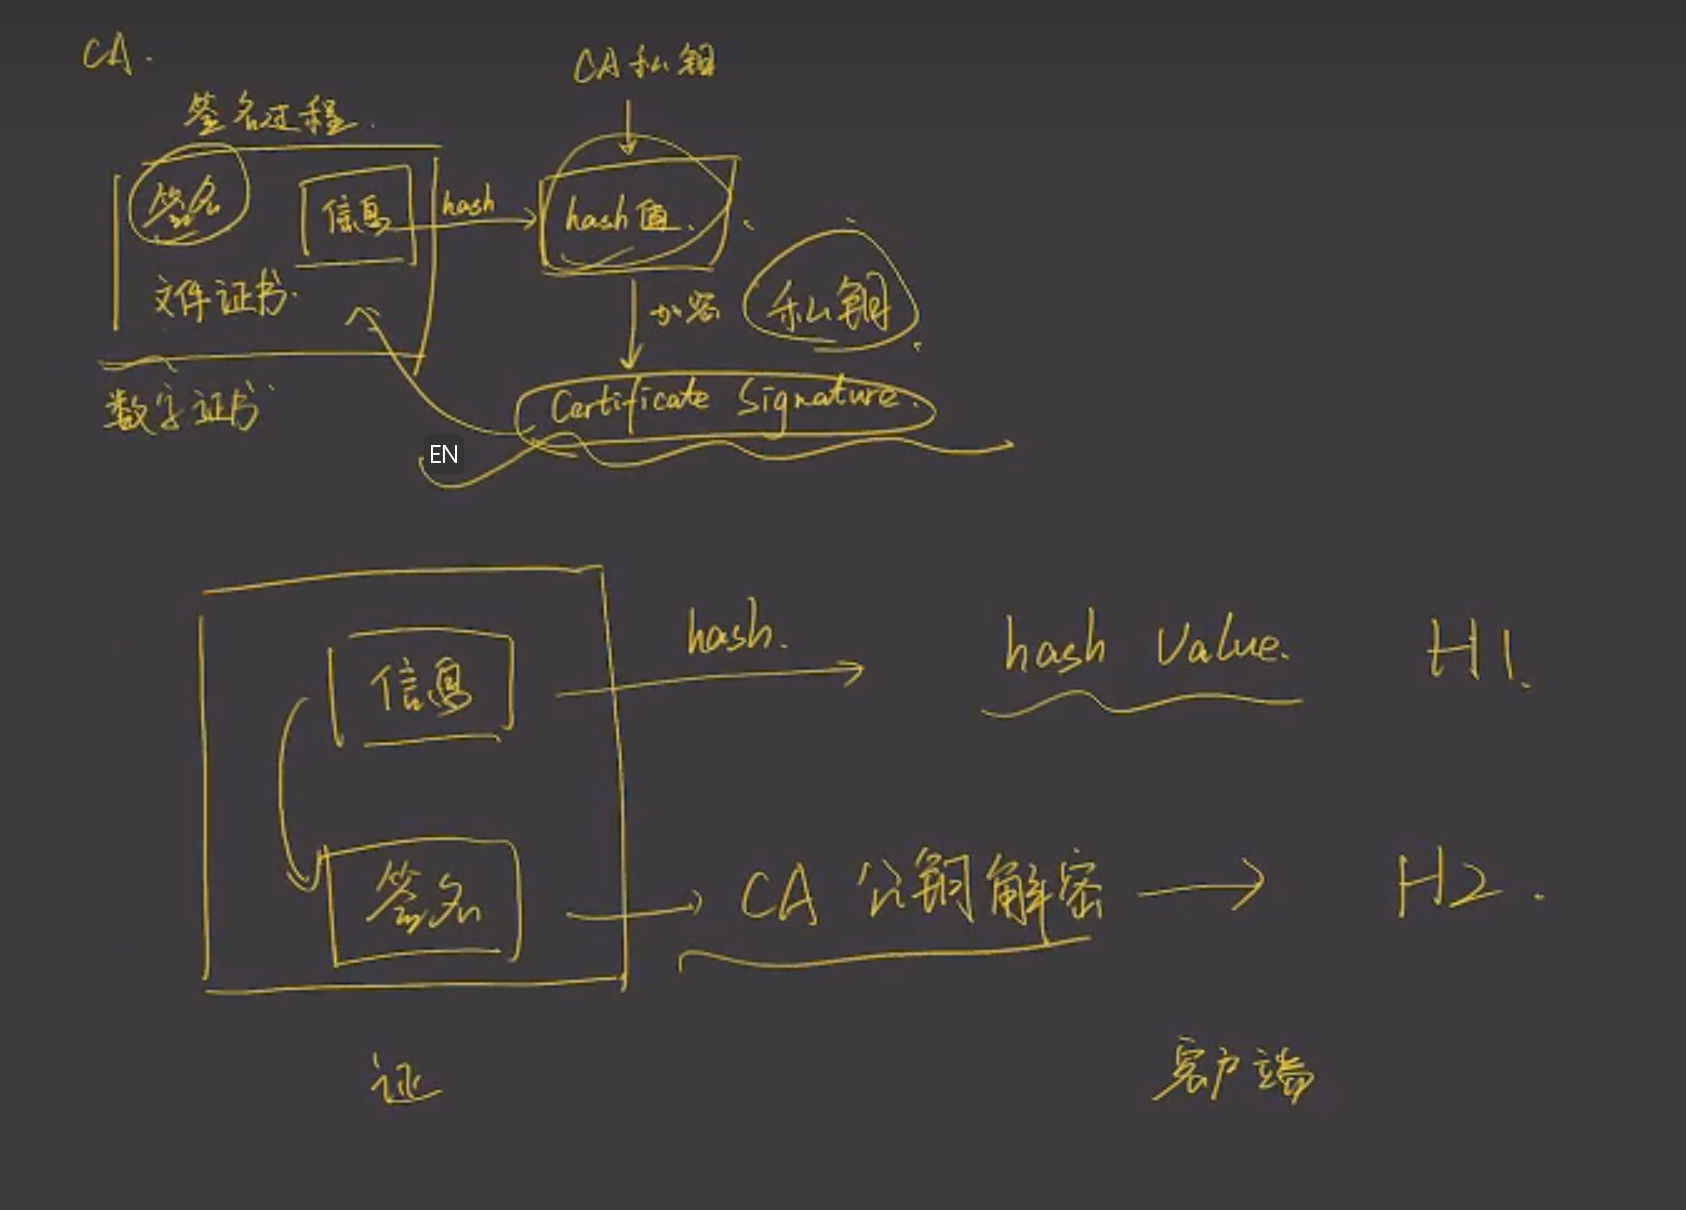 CA.
CA私钥
签名过程.
签名
信息
hash
hash值.
文件证书.
加密
私钥
数字证书
Certificate Signature.
EN
信息
hash.
hash Value.
H1.
签名
CA公钥解密
H2.
证
客户端